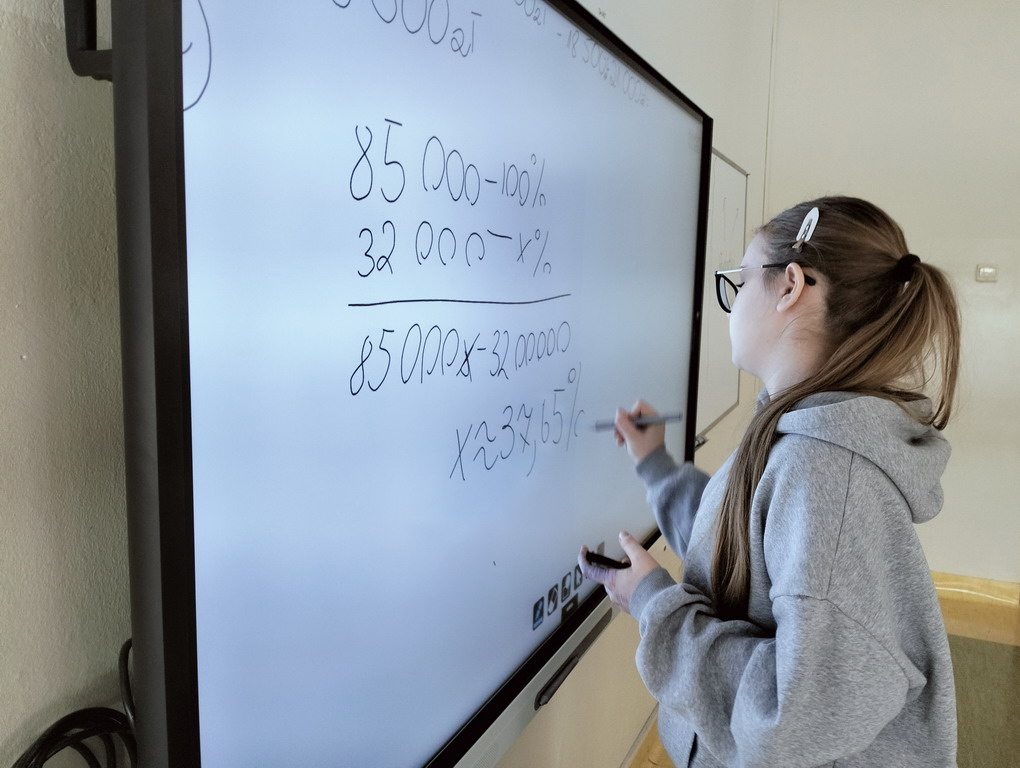 000zł
85 000-100%
32 000-x%
85000x-3200000
x≈37,65%